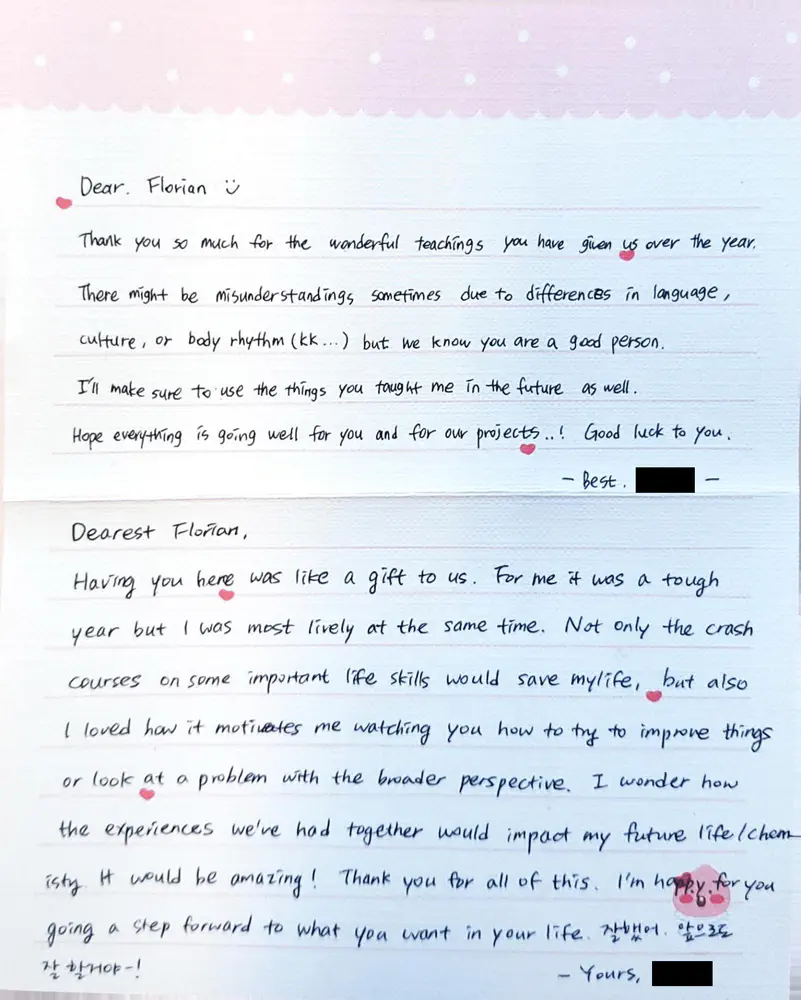 Dear. Florian
Thank you so much for the wonderful teachings you have given us over the year.
There might be misunderstandings sometimes due to differences in language,
culture, or body rhythm (kk...) but we know you are a good person.
I'll make sure to use the things you taught me in the future as well.
Hope everything is going well for you and for our projects..! Good luck to you.
- Best. -
Dearest Florian,
Having you here was like a gift to us. For me it was a tough
year but I was most lively at the same time. Not only the crash
courses on some important life skills would save my life, but also
I loved how it motivates me watching you how to try to improve things
or look at a problem with the broader perspective. I wonder how
the experiences we've had together would impact my future life/chem
isty. It would be amazing! Thank you for all of this. I'm happy for you
going a step forward to what you want in your life. 잘했어. 앞으로도
잘 할거야~!
- Yours,